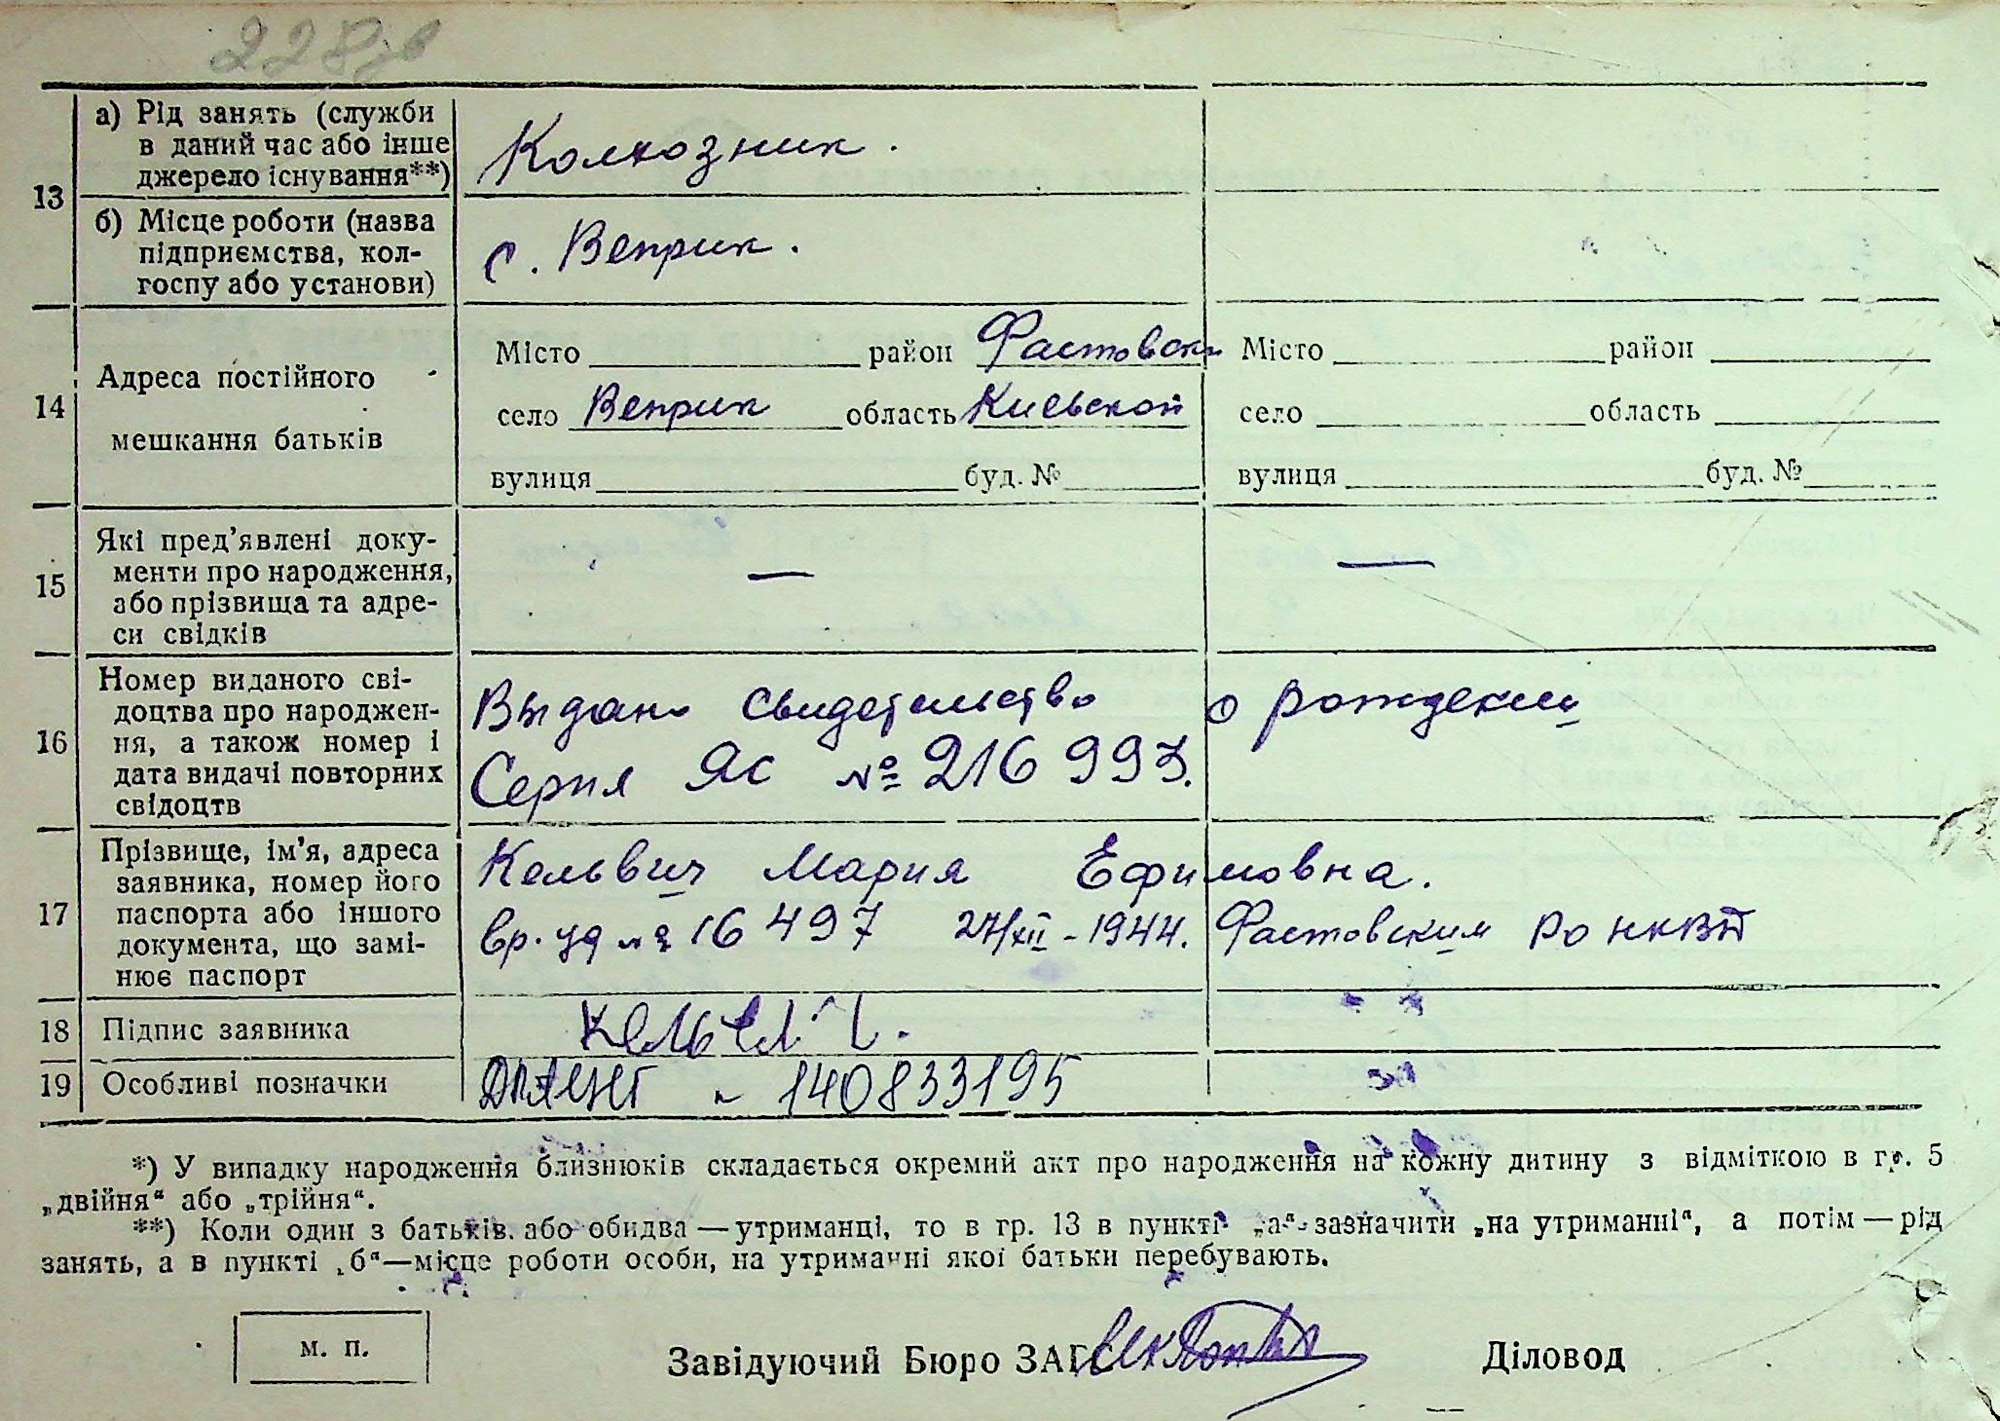 228зв
13
а) Рід занять (служби
в даний час або інше
джерело існування**)
Колхозник.
б) Місце роботи (назва
підприємства, кол-
госпу або установи)
с. Веприк.
14
Адреса постійного
мешкання батьків
Місто район Фастовски
село Веприк область Киевской
вулиця буд. №
Місто район
село область
вулиця буд. №
15
Які пред’явлені доку-
менти про народження,
або прізвища та адре-
си свідків
—
—
16
Номер виданого сві-
доцтва про народжен-
ня, а також номер і
дата видачі повторних
свідоцтв
Выдано свидетельство о рождении
Серия ЯС № 216997.
17
Прізвище, ім’я, адреса
заявника, номер його
паспорта або іншого
документа, що замі-
нює паспорт
Кельвич Мария Ефимовна.
вр. уд № 16497 27/XII-1944. Фастовским РО НКВД
18
Підпис заявника
19
Особливі позначки
140833195
*) У випадку народження близнюків складається окремий акт про народження на кожну дитину з відміткою в гр. 5
„двійня“ або „трійня“.
**) Коли один з батьків або обидва — утриманці, то в гр. 13 в пункті „а“ зазначити „на утриманні“, а потім — рід
занять, а в пункті „б“—місце роботи особи, на утриманні якої батьки перебувають.
м. п.
Завідуючий Бюро ЗАГС
Діловод